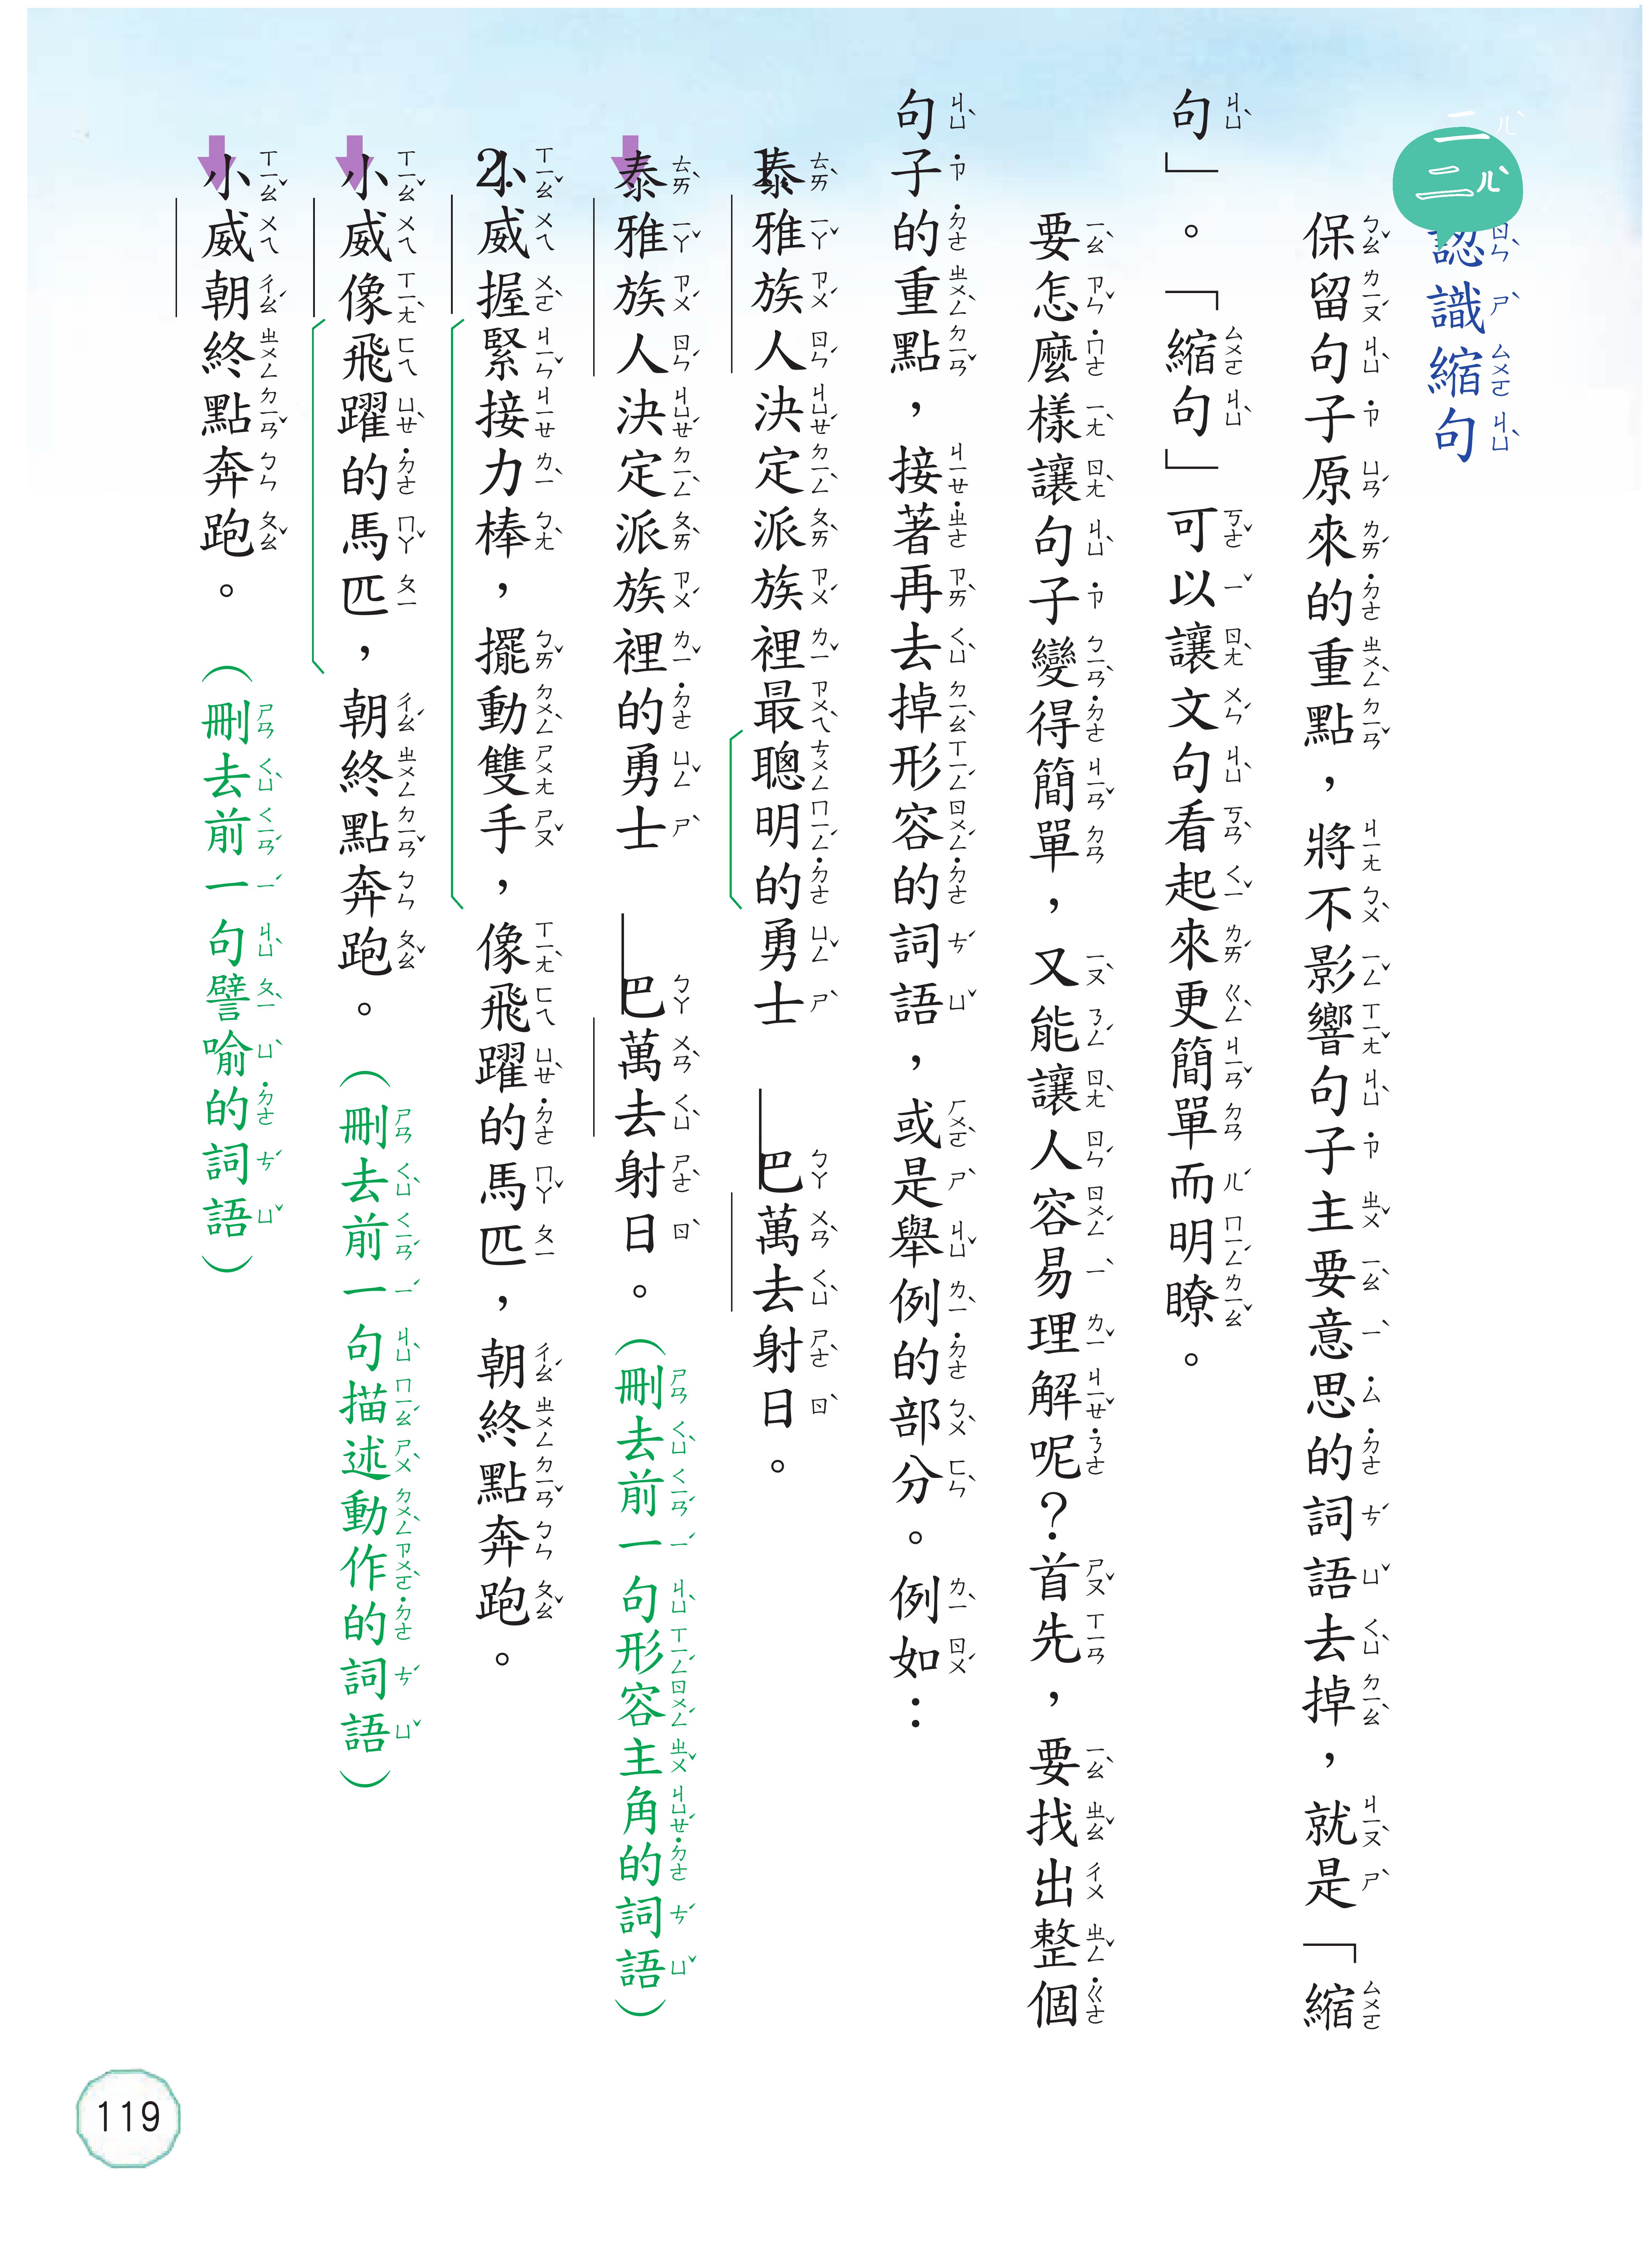 二 認識縮句
保留句子原來的重點，將不影響句子主要意思的詞語去掉，就是「縮
句」。「縮句」可以讓文句看起來更簡單而明瞭。
要怎麼樣讓句子變得簡單，又能讓人容易理解呢？首先，要找出整個
句子的重點，接著再去掉形容的詞語，或是舉例的部分。例如：
1.泰雅族人決定派族裡最聰明的勇士——巴萬去射日。
泰雅族人決定派族裡的勇士——巴萬去射日。（刪去前一句形容主角的詞語）
2.小威握緊接力棒，擺動雙手，像飛躍的馬匹，朝終點奔跑。
小威像飛躍的馬匹，朝終點奔跑。（刪去前一句描述動作的詞語）
小威朝終點奔跑。（刪去前一句譬喻的詞語）
119